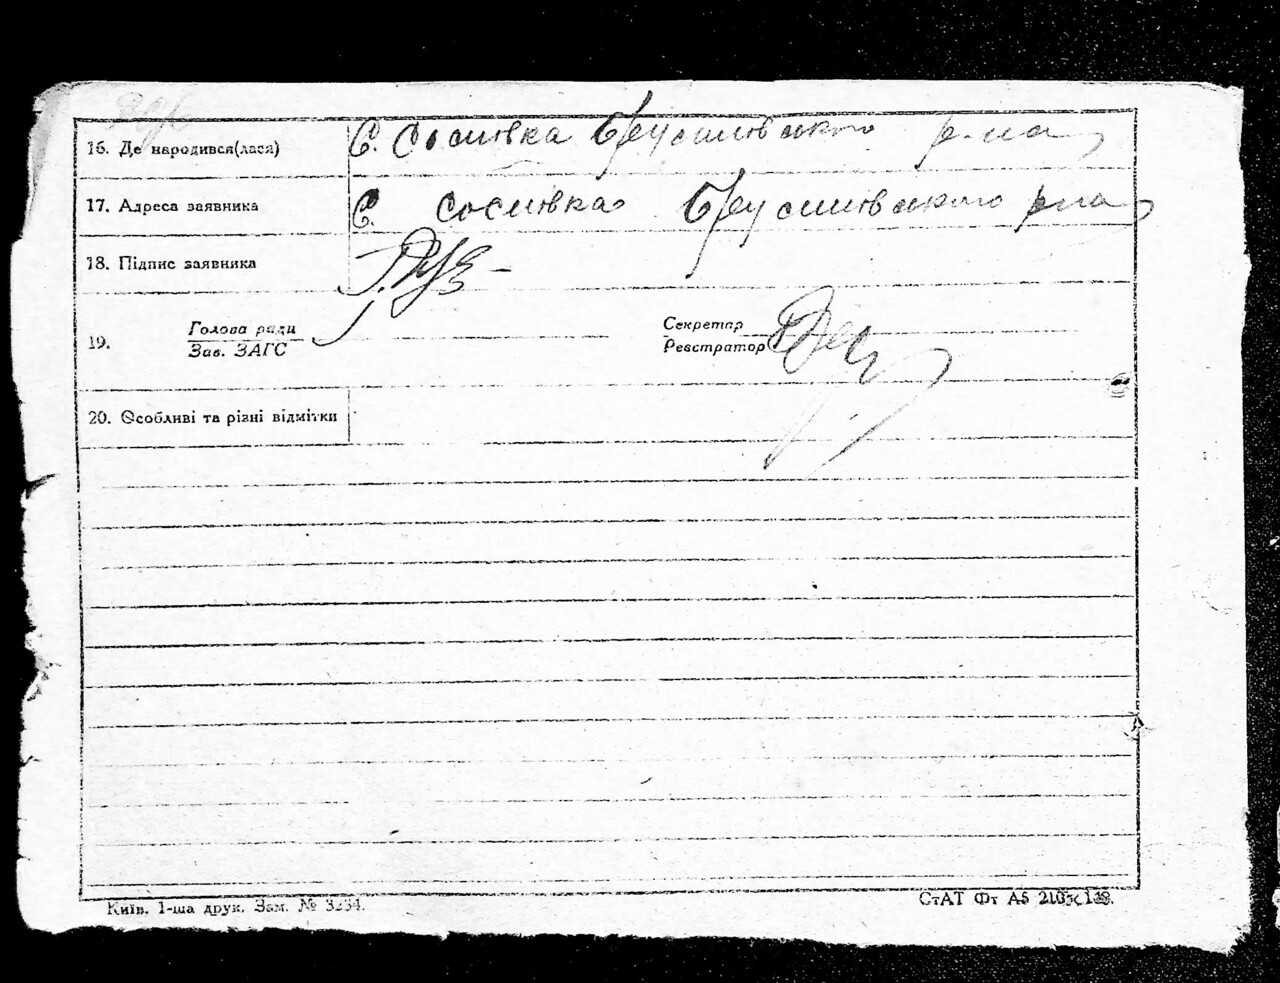 16. Де народився(лася) с. Соснівка Брусилівського р-на
17. Адреса заявника с. Соснівка Брусилівського р-на
18. Підпис заявника
19. Голова ради Секретар
Зав. ЗАГС Реєстратор
20. Особливі та різні відмітки
Київ. 1-ша друк. Зам. № 3234. СтАТ Фт А5